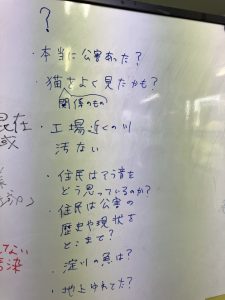 ?
・本当に公害あった?
・猫をよく見たかも?
関係のもの
・工場近くの川
汚ない
・住民はアラ音を
どう思っているのか?
・住民は公害の
歴史や現状を
どこまで?
・淀川の魚は?
・地上ゆれてた?
混在
染